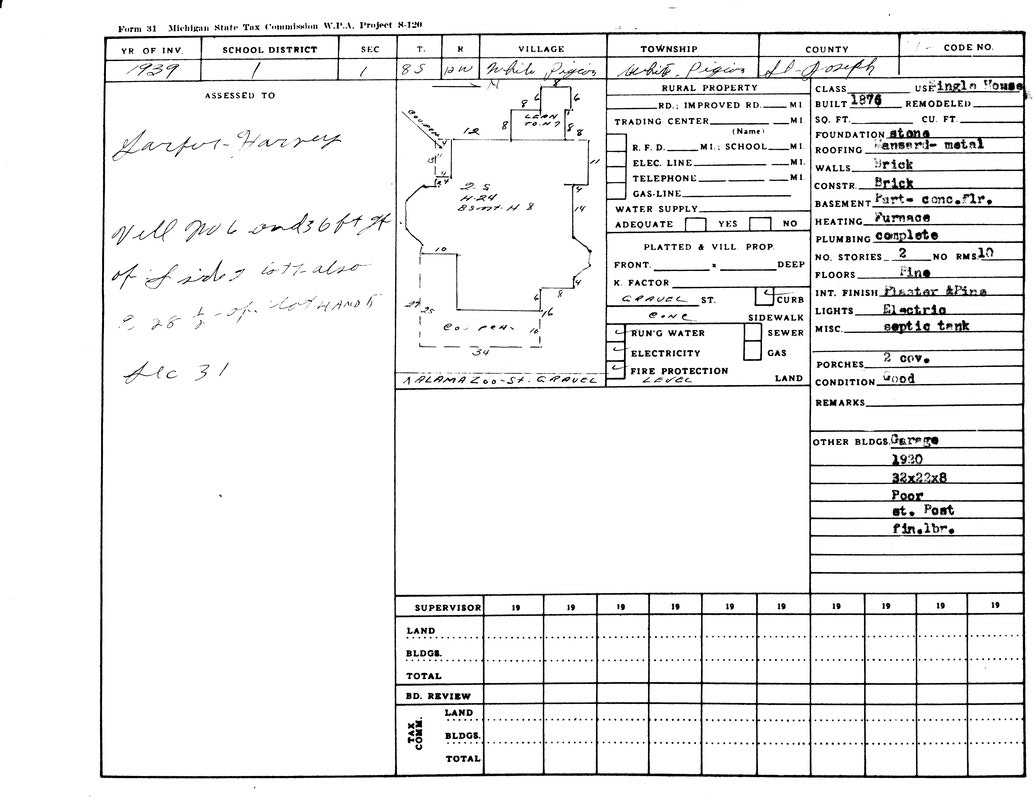 Form 31 Michigan State Tax Commission W.P.A. Project S-120
YR OF INV. SCHOOL DISTRICT SEC T. R VILLAGE TOWNSHIP COUNTY CODE NO.
1939 1 1 8S White Pigeon White Pigeon St Joseph
ASSESSED TO
Harvey
Vill No 6 and 36 ft of
of side lot also
28 ½ of lot 4 AND 5
Sec 31
N
6 8 6
8 LEAN TO. H 7 8 8
12
11
2 S
H-24
Bsmt. H 8
4
14
10
4
8
6
16
25
Co. PEN. 10
34
KALAMAZOO-St. GRAVEL
RURAL PROPERTY
RD.; IMPROVED RD. MI.
TRADING CENTER MI.
(Name)
R. F. D. MI.; SCHOOL MI.
ELEC. LINE MI.
TELEPHONE MI.
GAS-LINE
WATER SUPPLY
ADEQUATE YES NO
PLATTED & VILL PROP.
FRONT. x DEEP
K. FACTOR
GRAVEL ST. CURB
CONC SIDEWALK
RUN'G WATER SEWER
ELECTRICITY GAS
FIRE PROTECTION
LEVEL LAND
CLASS USE Single House
BUILT 1876 REMODELED
SQ. FT. CU. FT.
FOUNDATION stone
ROOFING Mansard- metal
WALLS Brick
CONSTR. Brick
BASEMENT Part- conc.flr.
HEATING Furnace
PLUMBING complete
NO. STORIES 2 NO RMS. 10
FLOORS Pine
INT. FINISH Plaster &Pine
LIGHTS Electric
MISC. septic tank
PORCHES 2 cov.
CONDITION Good
REMARKS
OTHER BLDGS. Garage
1920
32x22x8
Poor
st. Post
fin.lbr.
SUPERVISOR 19 19 19 19 19 19 19 19 19 19
LAND
BLDGS.
TOTAL
BD. REVIEW
TAX COMM.
LAND
BLDGS.
TOTAL